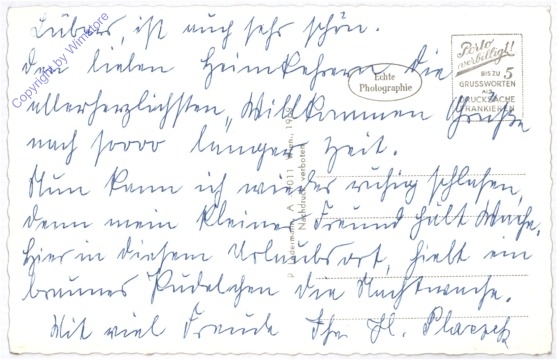 Lübars, ist auch sehr schön.
Den lieben Heimkehrern die
allerherzlichsten „Willkommen Grüße
nach soooo langer Zeit.
Nun kann ich wieder ruhig schlafen,
denn mein kleiner Freund hält Wache.
Hier in diesem Urlaubsort, hielt ein
braunes Pudelchen die Nachtwache.
Mit viel Freude Ihr H.
Porto
verbilligt!
BIS ZU 5
GRUSSWORTEN
ALS
DRUCKSACHE
FRANKIEREN
Echte
Photographie
Nachdruck verboten
Copyright by Wimstore